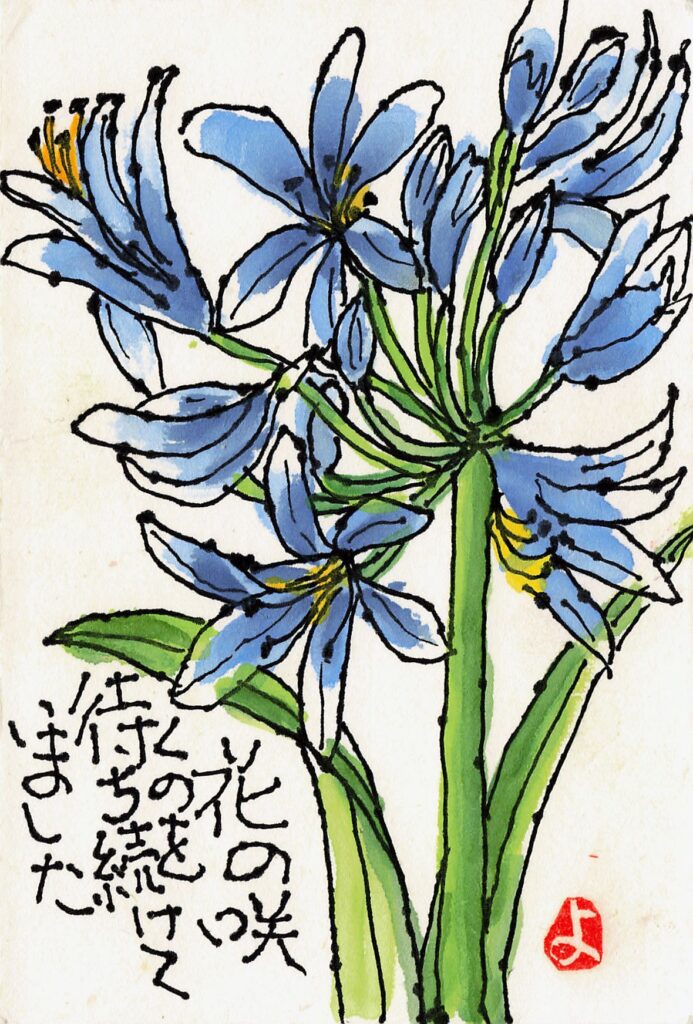 花の咲
くのを
待ち続けて
いました
よ